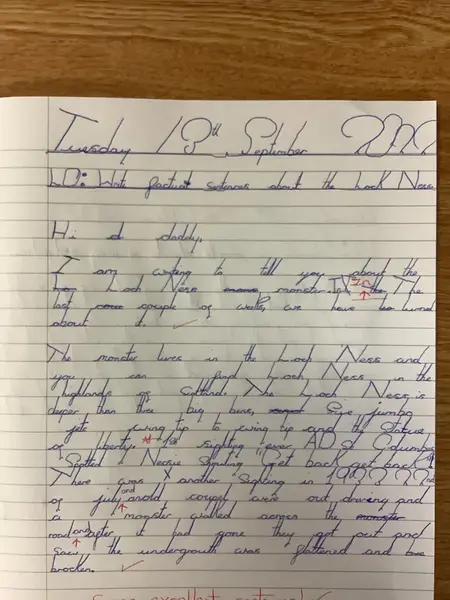 Tuesday 13th September 2022
LO: Write factual sentences about the Loch Ness.
Hi daddy,
I am writing to tell you about the
Loch Ness monster. In The
last couple of weeks, we have learned
about it.
The monster lives in the Loch Ness and
you can find Loch Ness in the
highlands of Scotland. The Loch Ness is
deeper than three big bens, jumbo
jets wing tip to wing tip and the Statue
of liberty. sighting ever AD St Columba
Spotted Nessie "Get back get back"
There was another Sighting in 22nd
of july and an old couple were out driving and
a monster walked across the
road and after it had gone they got out and
saw the undergrouth was flattened and
brocken.